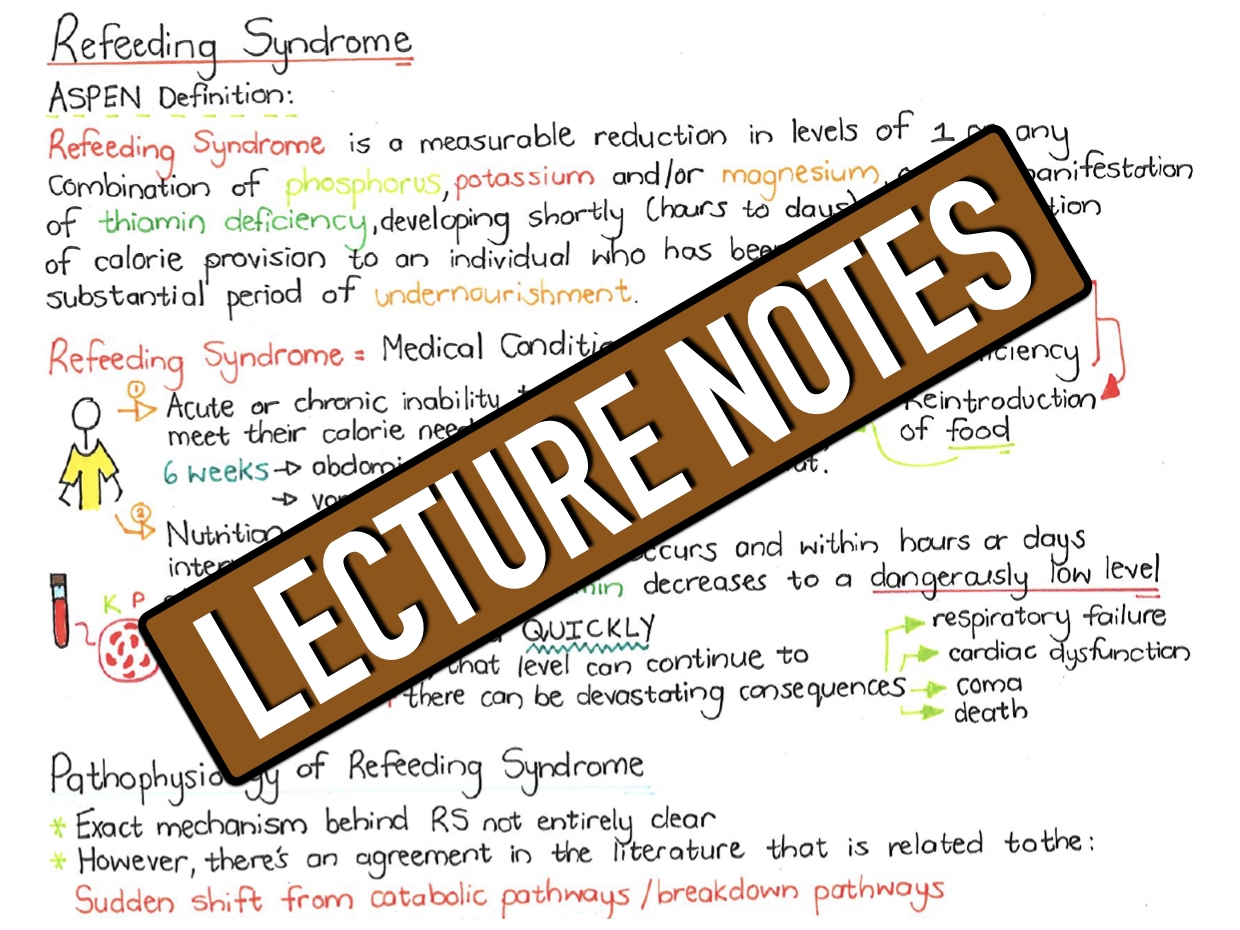 Refeeding Syndrome
ASPEN Definition:
Refeeding Syndrome is a measurable reduction in levels of 1 or any
combination of phosphorus, potassium and/or magnesium,
of thiamin deficiency, developing shortly (hours to days)
of calorie provision to an individual who has been
substantial period of undernourishment.
Refeeding Syndrome = Medical
①
Acute or chronic inability
Reintroduction
meet their calorie
of food
6 weeks →
→
②
Nutrition
occurs and within hours or days
decreases to a dangerously low level
K P
QUICKLY
respiratory failure
that level can continue to
cardiac dysfunction
there can be devastating consequences → coma
death
LECTURE NOTES
Pathophysiology of Refeeding Syndrome
* Exact mechanism behind RS not entirely clear
* However, there's an agreement in the literature that is related to the:
Sudden shift from catabolic pathways/breakdown pathways